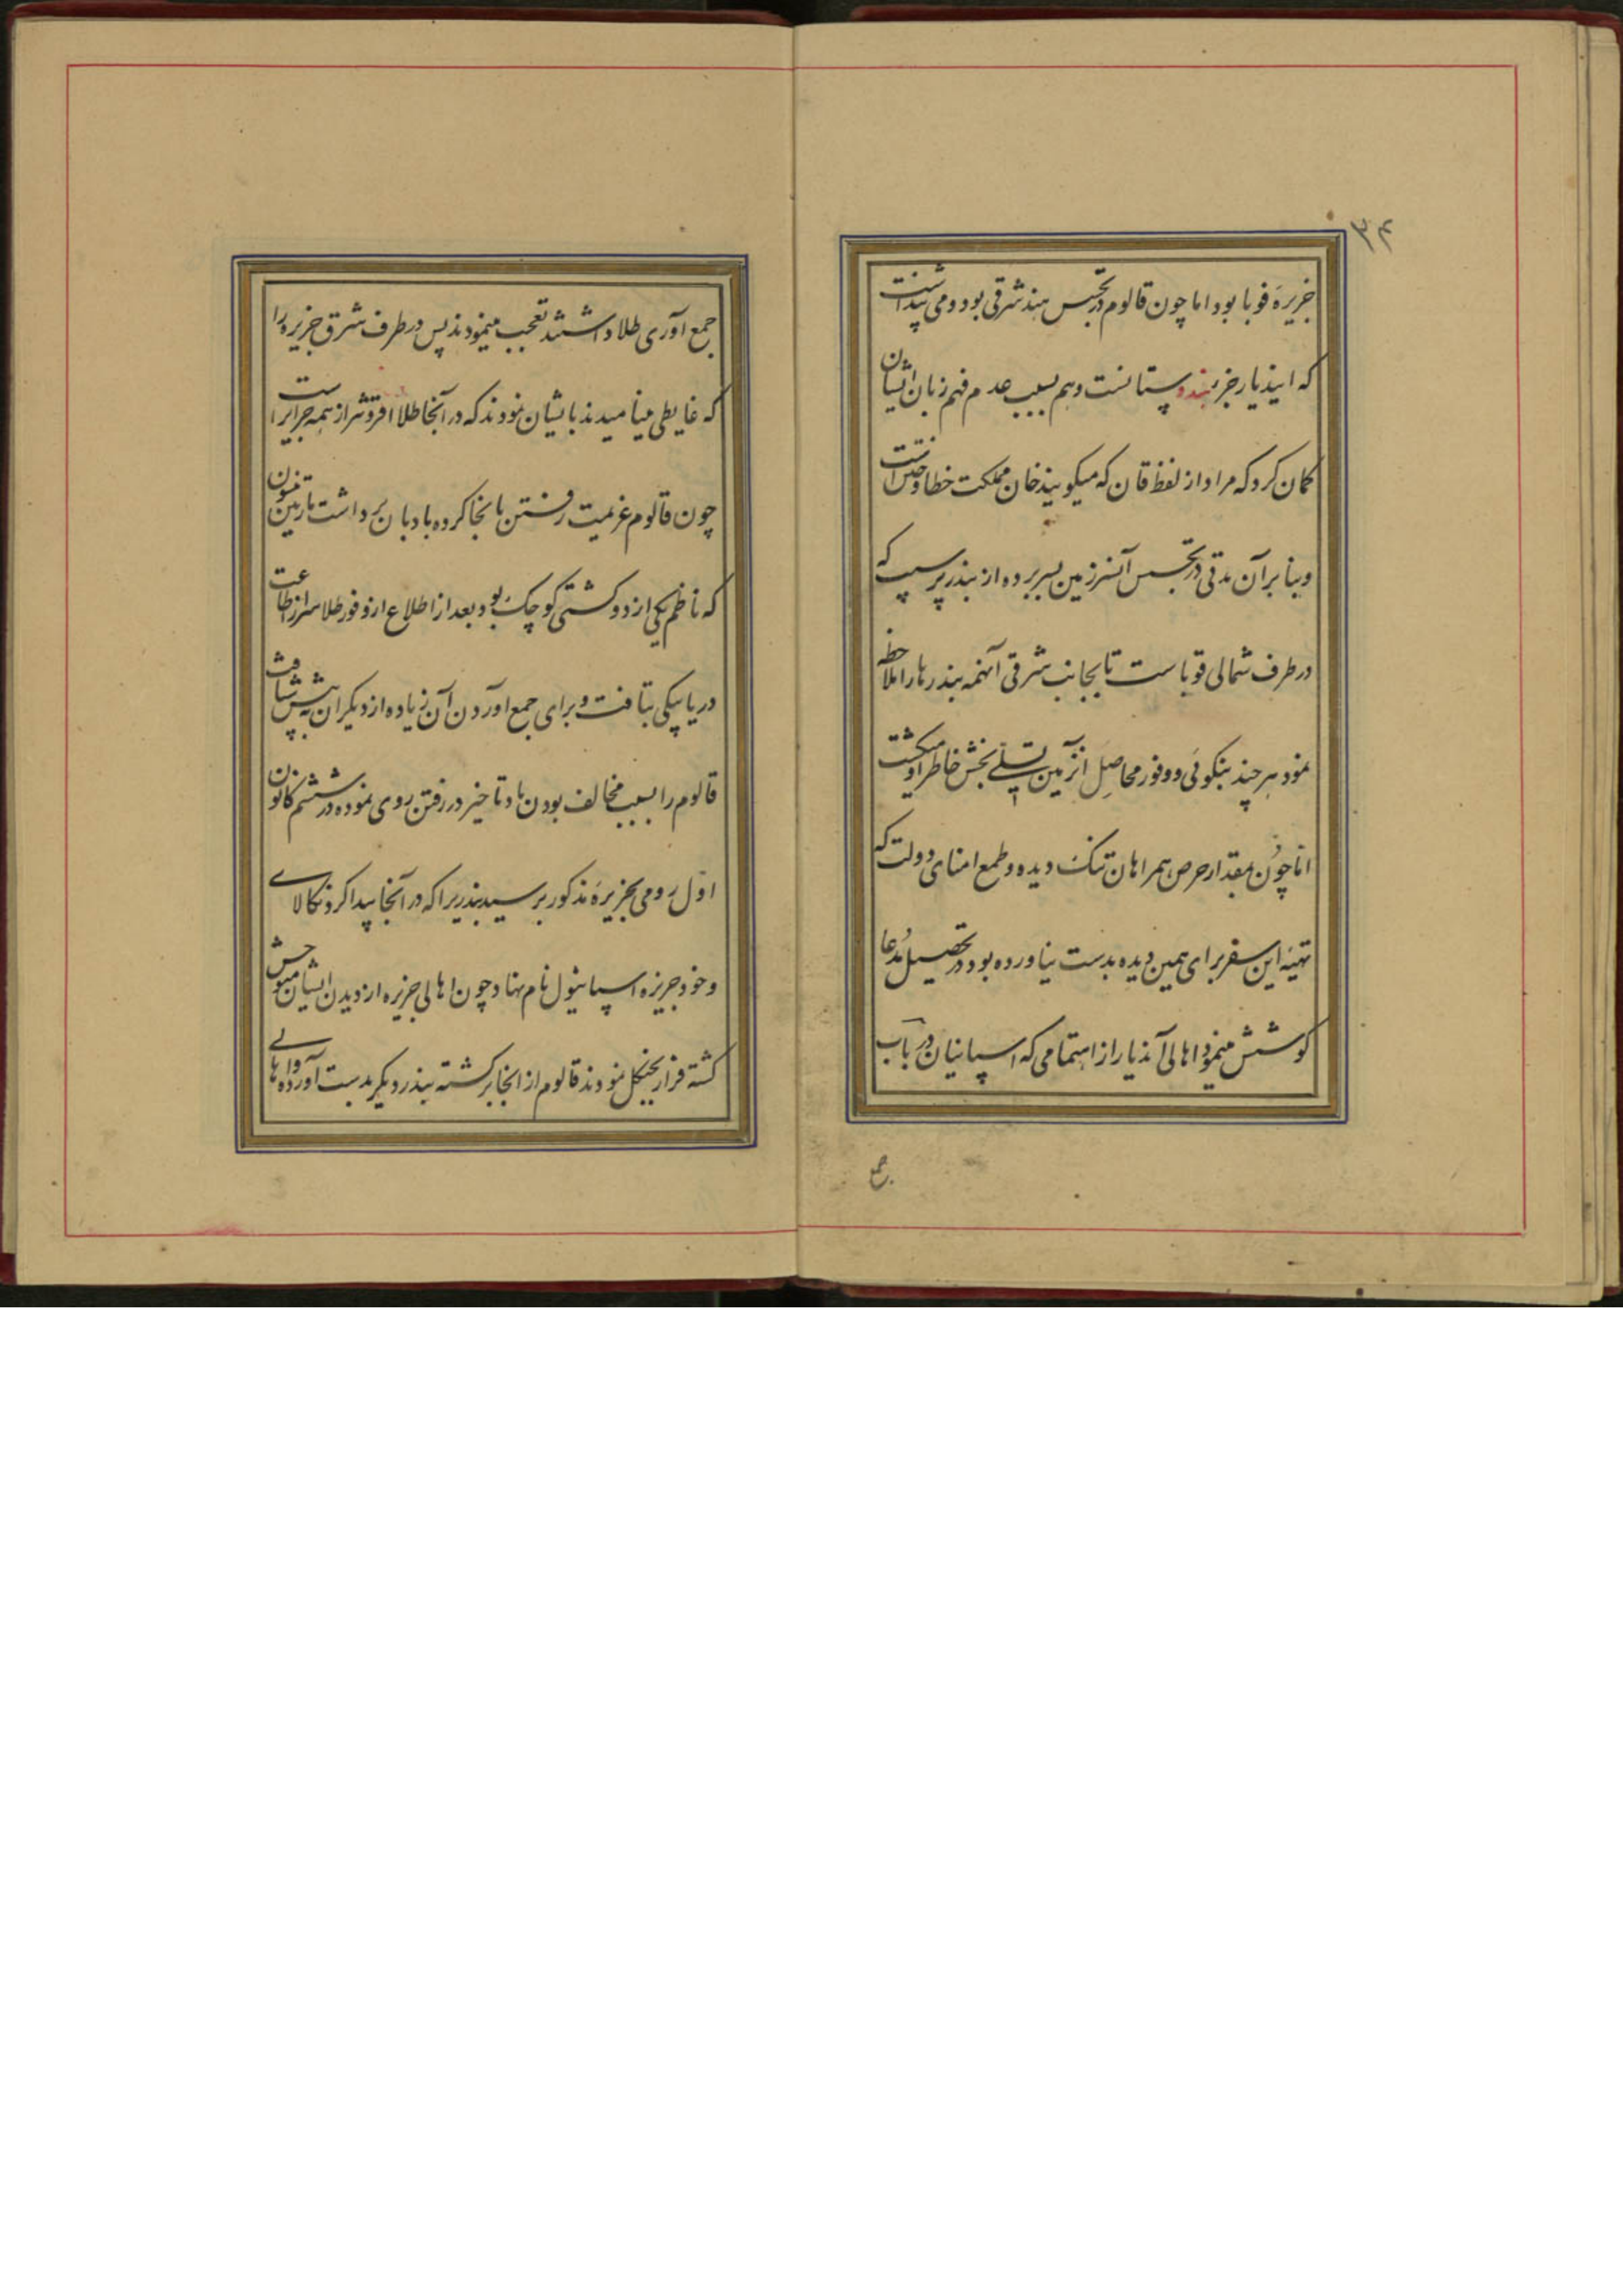 ۳۴
جزیرهٔ قوبا بود اما چون قالوم در تجسس هند شرقی بود و می پنداشت
که ایندیار جزء هندوستانست و هم بسبب عدم فهم زبان ایشان
کمان کرد که مراد از لفظ قان که میکویند خان مملکت خطا و ختن است
و بنا بر آن مدتی در تجسس آنسرزمین بسر برده از بندر پرسپ که
در طرف شمالی قوباست تا بجانب شرقی آنهمه بندرها را ملاحظه
نمود هر چند نیکوئی و وفور محاصل آنزمین تسلی بخش خاطر او میکشت
اما چون بمقدار حرص همراهان تنک دیده و طمع امنای دولت که
تهیهٔ این سفر برای همین دیده بدست نیاورده بود در تحصیل مدعا
کوشش مینمود اهالی آندیار از اهتمامی که اسپانیان در باب
جمع
جمع آوری طلا داشتند تعجب مینمودند پس در طرف شرق جزیره را
که غایطی مینامیدند بایشان نمودند که در آنجا طلا افزونتر از همه جزایر است
چون قالوم عزیمت رفتن بانجا کرده بادبان برداشت مارتین
که ناظم یکی از دو کشتی کوچک بود بعد از اطلاع از وفور طلا سر از اطاعت
دریابیکی بتافت و برای جمع آوردن آن زیاده از دیکران پیش شتافت
قالوم را بسبب مخالف بودن باد تاخیر در رفتن روی نموده در ششم کانون
اول رومی بجزیرهٔ مذکور بر سید بندریرا که در آنجا پیدا کرد نکالای
و خود جزیره اسپانیول نام نهاد چون اهالی جزیره از دیدن ایشان متوحش
کشته فرار بجنکل نمودند قالوم از انجا برکشته ببندر دیکر بدست آورده اهالی